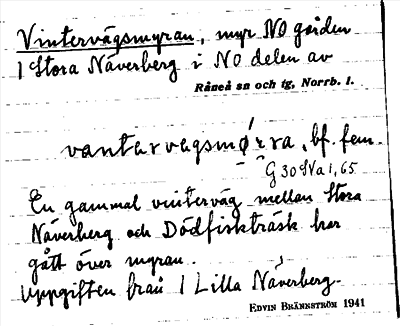 Vintervägsmyran, myr NO gården
1 Stora Näverberg i NO delen av
Råneå sn och tg, Norrb. l.
vantarvegsmøra, bf. fem.
G 30 SVa 1,65
En gammal vinterväg mellan Stora
Näverberg och Dödfiskträsk har
gått över myran.
Uppgiften från 1 Lilla Näverberg.
EDVIN BRÄNNSTRÖM 1941